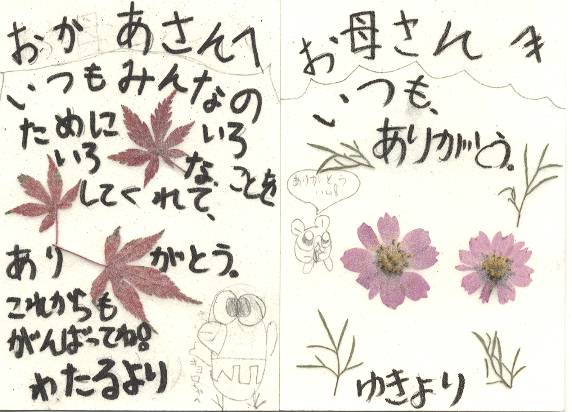 おかあさんへ
いつもみんなの
ためにいろ
いろなことを
してくれて、
ありがとう。
これからも
がんばってね!
わたるより
お母さんへ
いつも、
ありがとう。
ありがとう
ゆきより